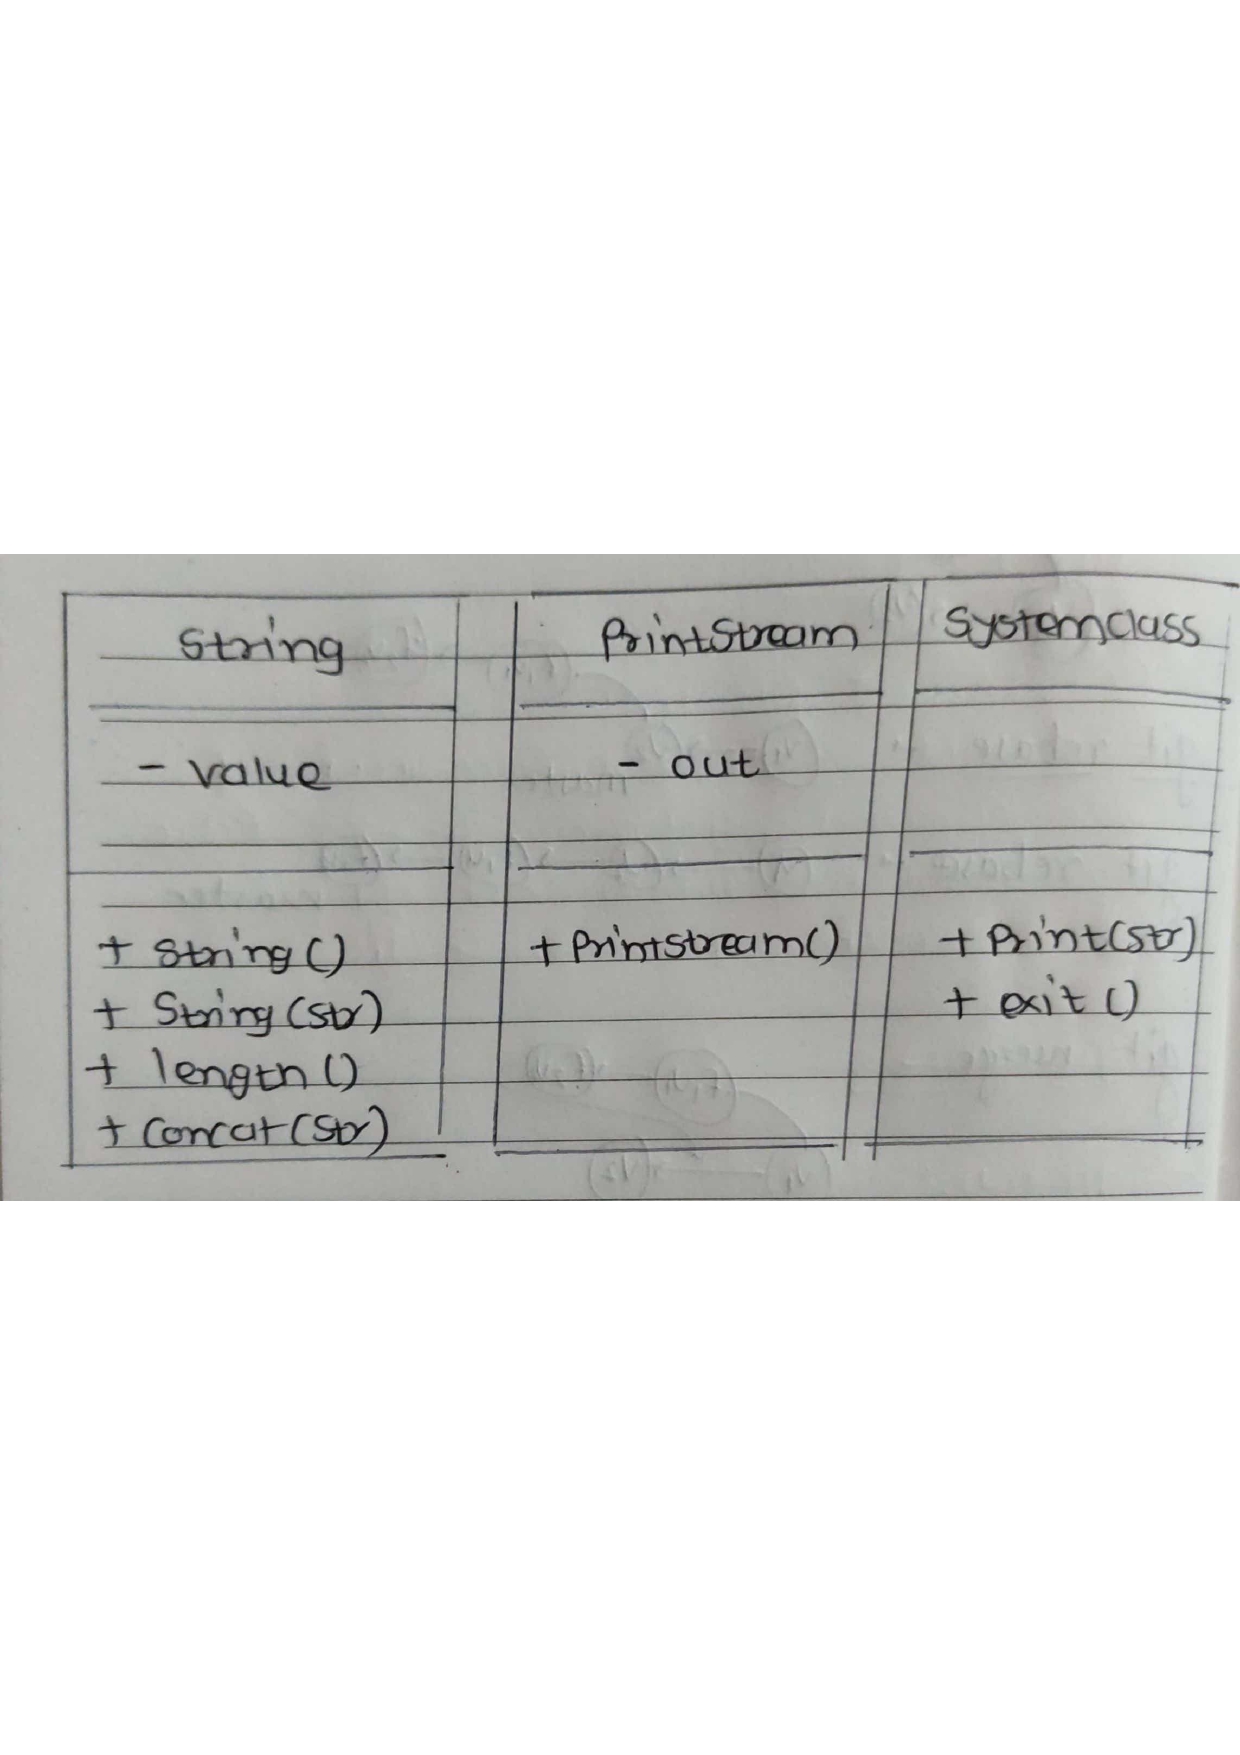 String
- value
+ String()
+ String(str)
+ length()
+ Concat(str)
PrintStream
- out
+ Printstream()
Systemclass
+ Print(str)
+ exit()